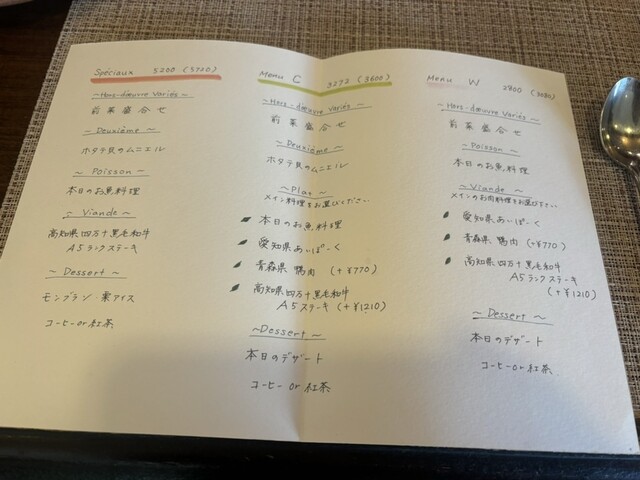 Spéciaux 5200 (5720)
~Hors-dœuvre Variés~
前菜盛合せ
~Deuxième~
ホタテ貝のムニエル
~Poisson~
本日のお魚料理
~Viande~
高知県四万十黒毛和牛
A5ランクステーキ
~Dessert~
モンブラン・栗アイス
コーヒー or 紅茶
Menu C 3272 (3600)
~Hors-dœuvre Variés~
前菜盛合せ
~Deuxième~
ホタテ貝のムニエル
~Plat~
メイン料理をお選びください
本日のお魚料理
愛知県あいぽーく
青森県 鴨肉 (+¥770)
高知県四万十黒毛和牛
A5ステーキ (+¥1210)
~Dessert~
本日のデザート
コーヒー or 紅茶
Menu W 2800 (3080)
~Hors-dœuvre Variés~
前菜盛合せ
~Poisson~
本日のお魚料理
~Viande~
メインのお肉料理をお選び下さい
愛知県あいぽーく
青森県 鴨肉 (+¥770)
高知県四万十黒毛和牛
A5ランクステーキ
(+¥1210)
~Dessert~
本日のデザート
コーヒー or 紅茶